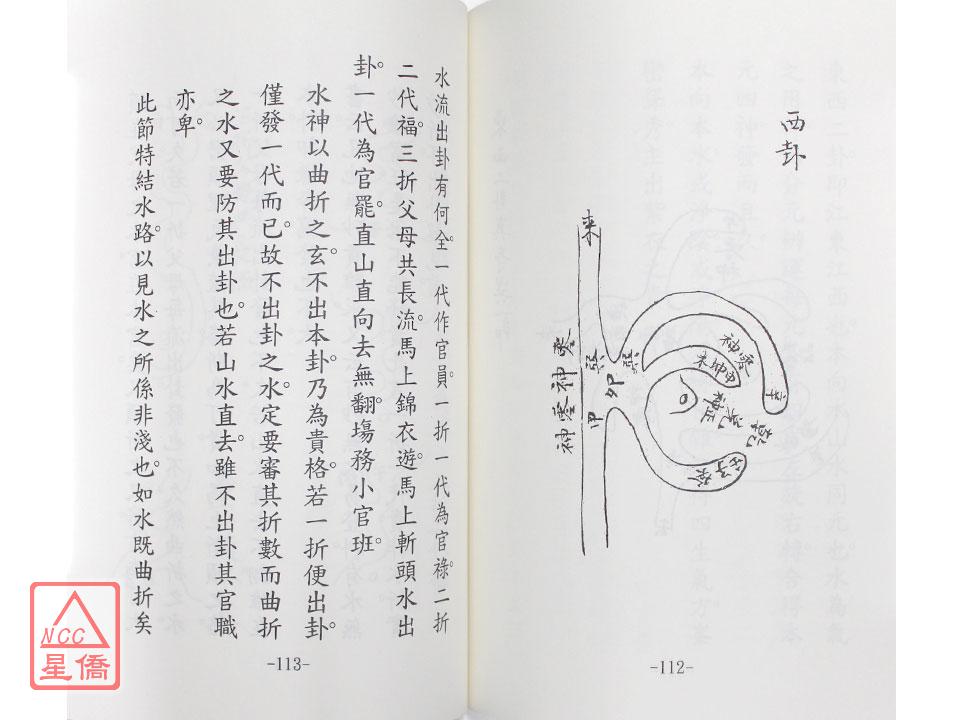 西卦
来
神零神零
甲
卯
巽
巽
神零
未坤申
神正
兌
乾
辛
壬子癸
-112-
水流出卦有何全。一代作官員。一折一代為官祿。二折
二代福。三折父母共長流。馬上錦衣遊。馬上斬頭水出
卦。一代為官罷。直山直向去無翻。塲務小官班。
水神以曲折之玄。不出本卦。乃為貴格。若一折便出卦。
僅發一代而已。故不出卦之水。定要審其折數。而曲折
之水又要防其出卦也。若山水直去。雖不出卦。其官職
亦卑。
此節特結水路。以見水之所係非淺也。如水既曲折矣
-113-
NCC
星僑